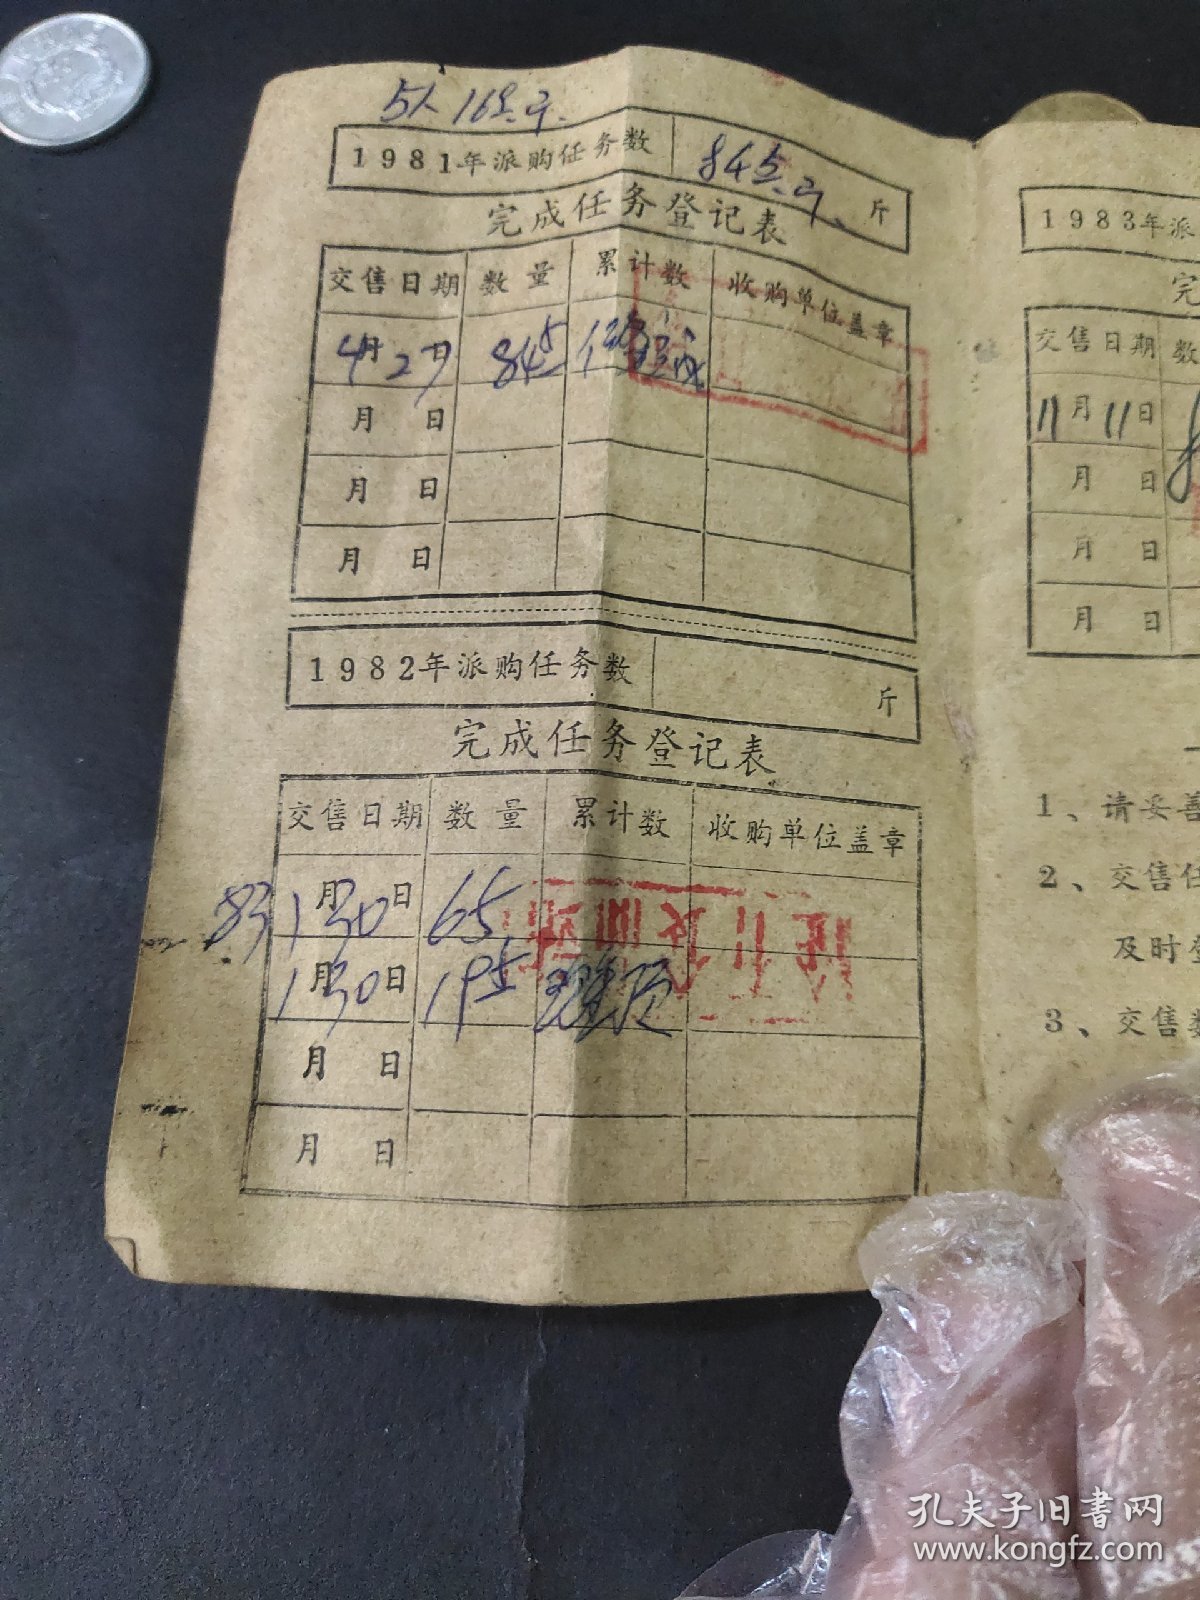 5人168.
1981年派购任务数 84 斤
完成任务登记表
交售日期 数量 累计数 收购单位盖章
4月27日 84
月 日
月 日
月 日
1982年派购任务数 斤
完成任务登记表
交售日期 数量 累计数 收购单位盖章
83 1月30日 65
1月30日 19
月 日
月 日
1983年派
完
交售日期 数
11月11日
月 日
月 日
月 日
1、请妥善
2、交售任
及时登
3、交售数
孔夫子旧书网
www.kongfz.com